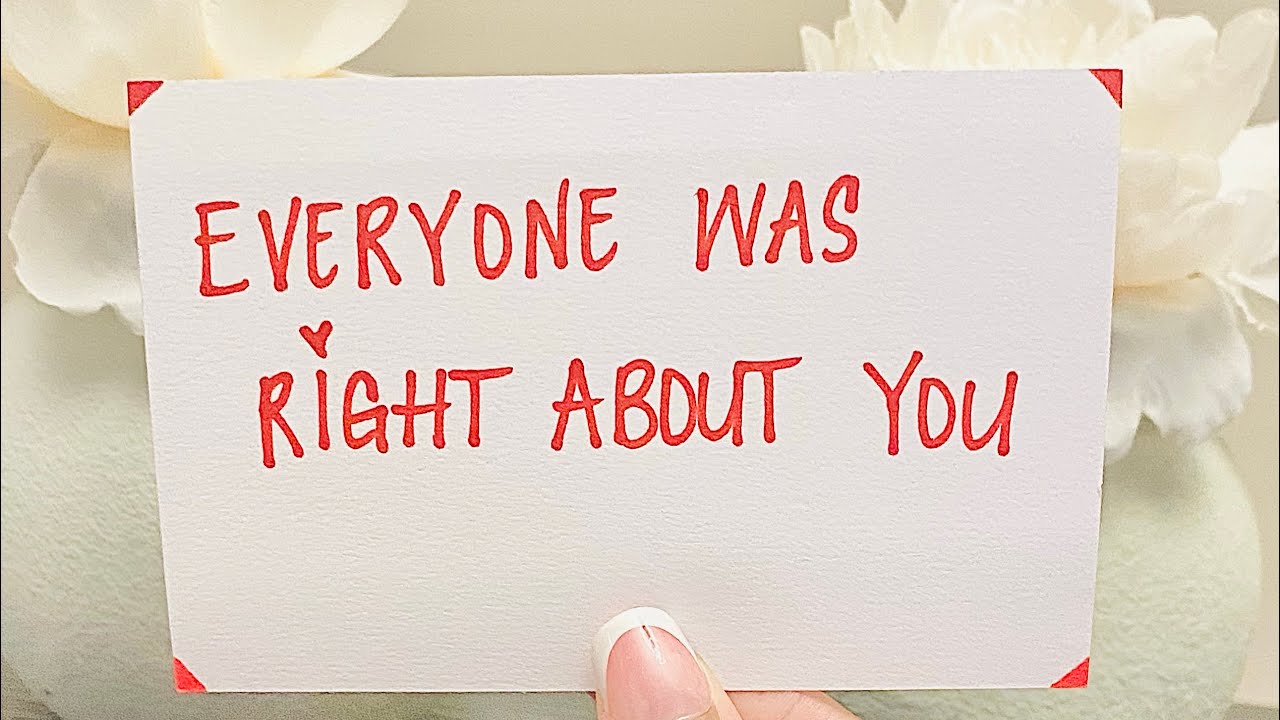 EVERYONE WAS
RiGHT ABOUT YOU